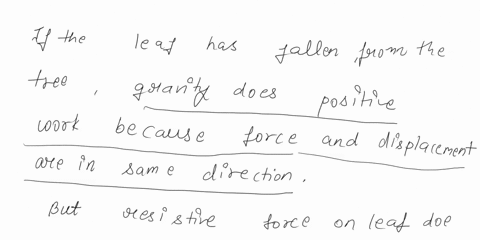 If the leaf has fallen from the
tree, gravity does positive
work because force and displacement
are in same direction.
But resistive force on leaf doe